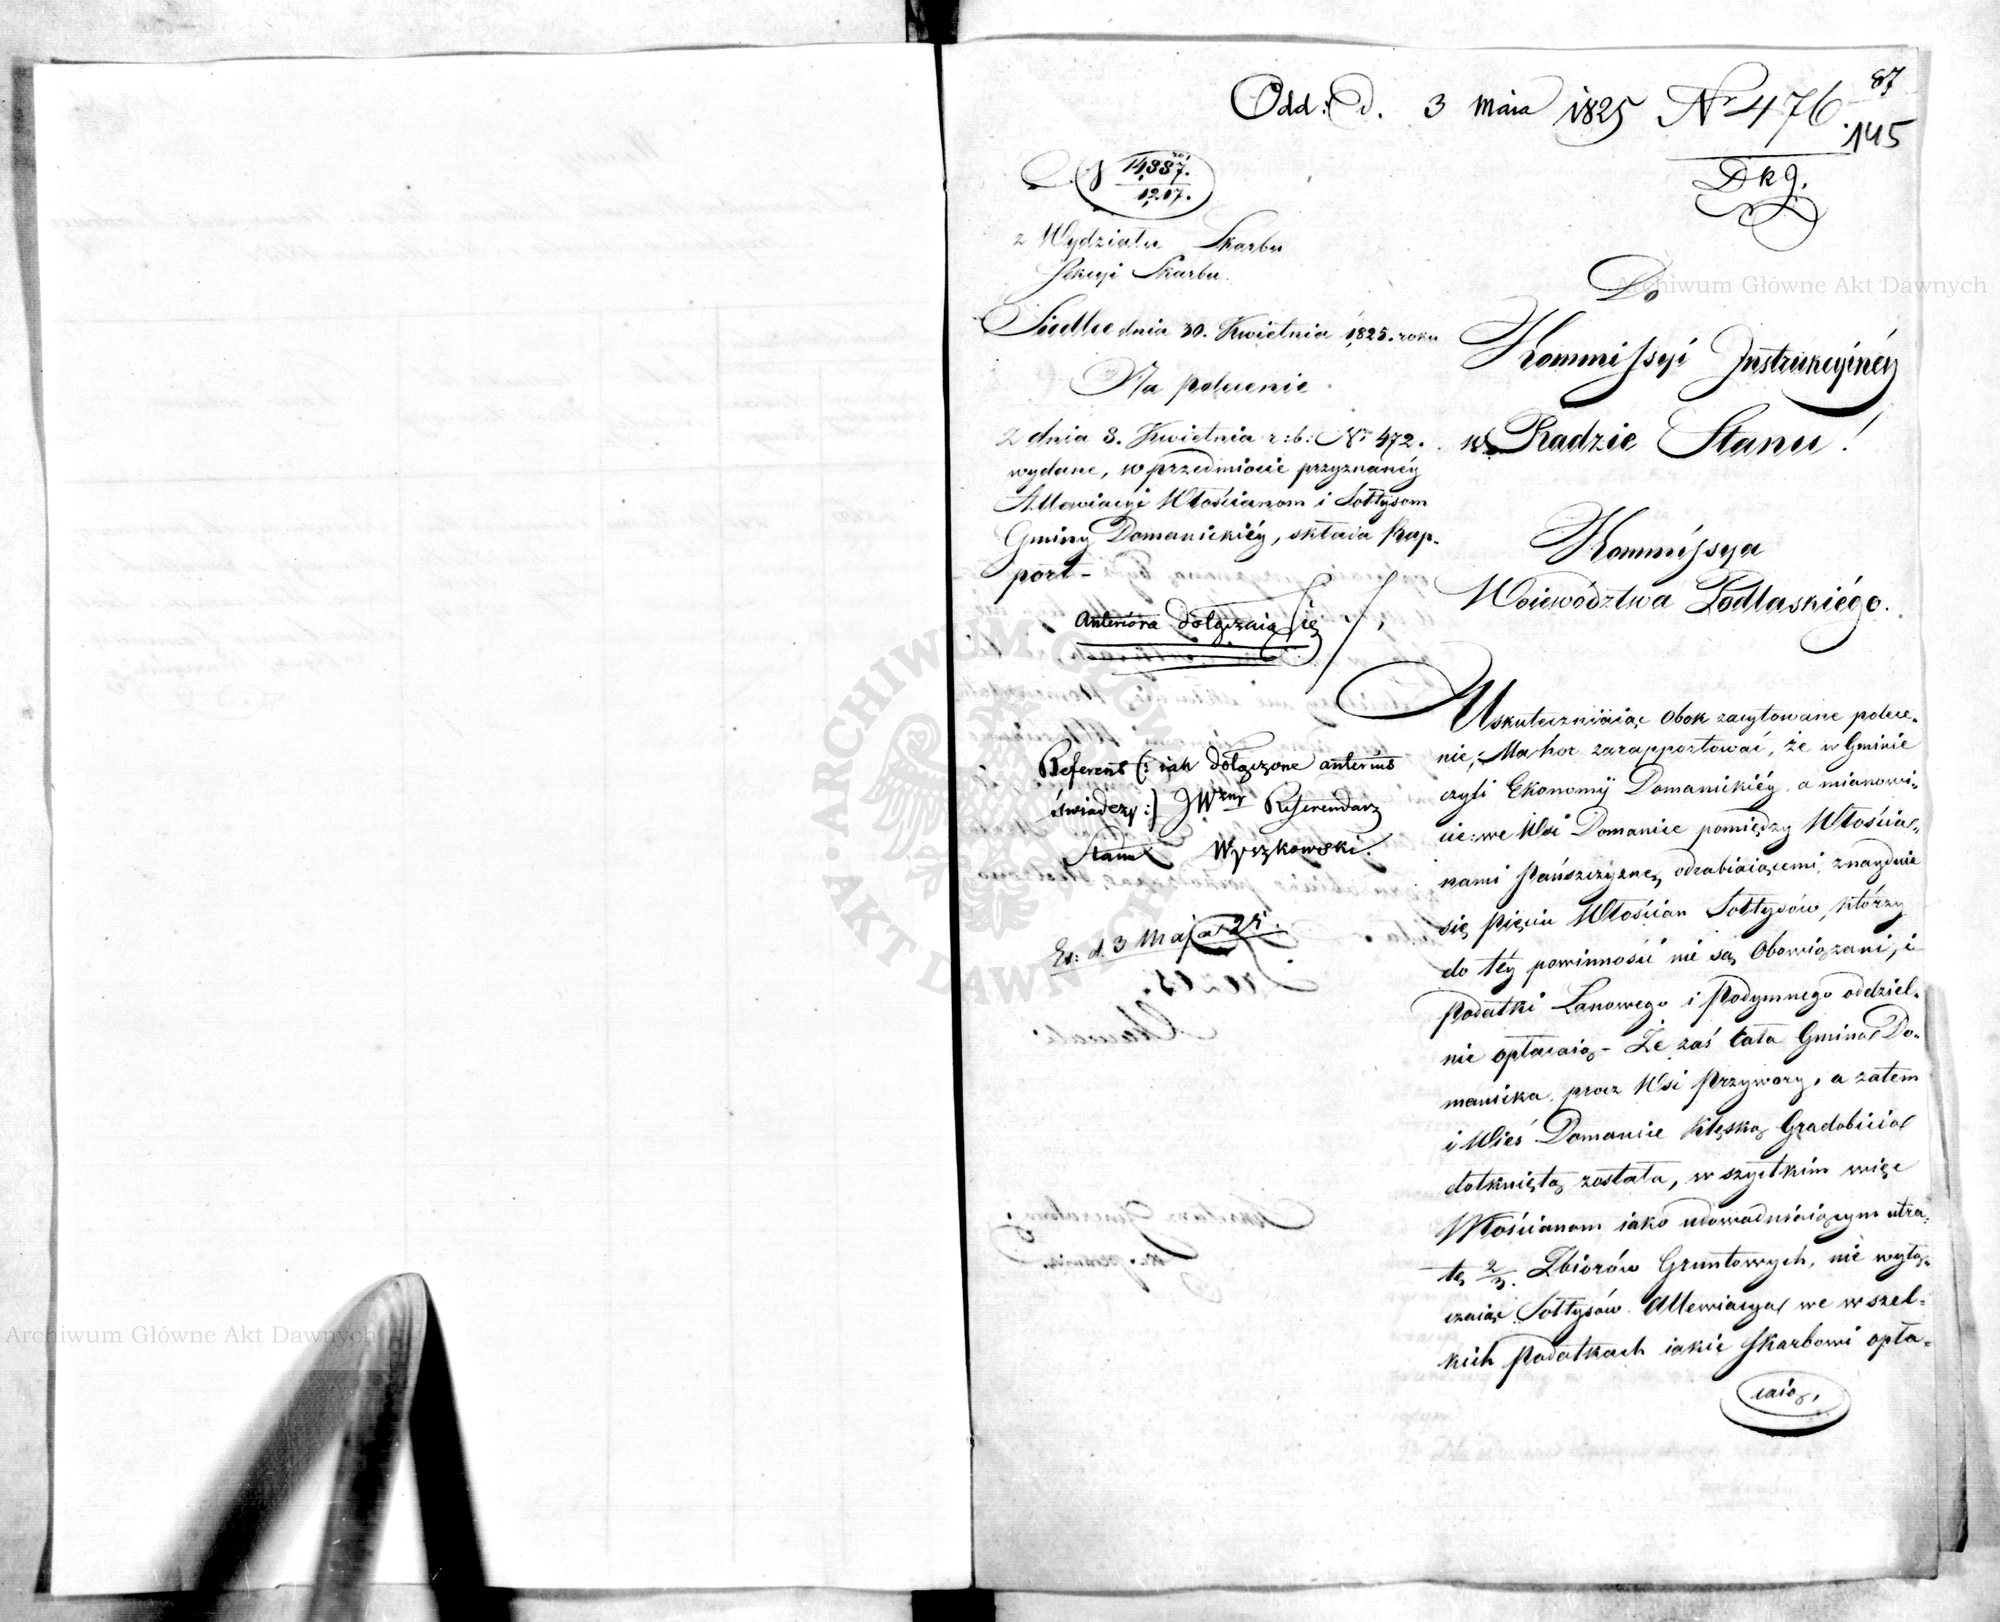 87
Odd: d. 3 Maia 1825 Nr 476
145
Dkg.
14,887.
12,17.
z Wydziału Skarbu
Sekcyi Skarbu.
Siedlce dnia 30. Kwietnia 1825. roku
Na polecenie
z dnia 8. Kwietnia r: b: Nr 472.
wydane, w przedmiocie przyznanéy
Allewiacyi Włościanom i Sołtysom
Gminy Domanickiéy, składa Rap-
port-
Anteriora dołączaią się
Referent (: iak dołączone anterius
świadczy :) JWzny Referendarz
Stanu Wyszkowski.
Ex: d. 3 Maja 25.
Do
Kommissyi Instrukcyinéy
w Radzie Stanu!
Kommissya
Woiewództwa Podlaskiégo.
Uskuteczniaiąc obok zacytowane polece-
nie, Ma hor zarapportować, że w Gminie
czyli Ekonomij Domanickiéy a mianowi-
cie: we Wsi Domanice pomiędzy Włościa-
nami Pańszczyznę odrabiaiącemi, znayduie
się pięciu Włościan Sołtysów, którzy
do téy powinności nie są obowiązani, i
Podatki Łanowego i Podymnego oddziel-
nie opłacaią - Że zaś cała Gmina Do-
manicka prócz Wsi Przywory, a zatem
i Wieś Domanice klęską Gradobicia
dotkniętą została, wszystkim więc
Włościanom iako udowadniaiącym utra-
tę 2/3. Zbiorów Gruntowych, nie wyłą-
czaiąc Sołtysów Allewiacya we wszel-
kich Podatkach iakie Skarbowi opła-
caią,
Archiwum Główne Akt Dawnych
Archiwum Główne Akt Dawnych
ARCHIWUM GŁÓWNE AKT DAWNYCH